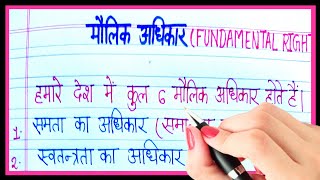 मौलिक अधिकार (FUNDAMENTAL RIGHT
हमारे देश में कुल 6 मौलिक अधिकार होते हैं।
1. समता का अधिकार
2. स्वतन्त्रता का अधिकार